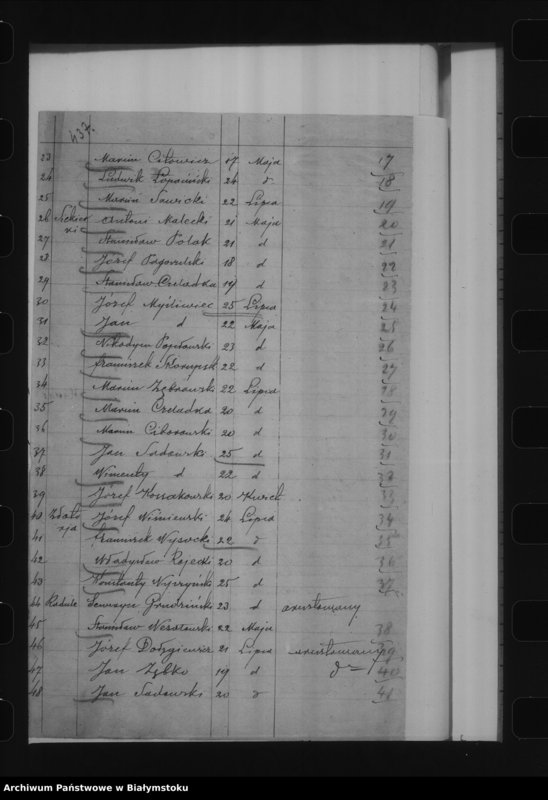 437.
23 Marcin Citowicz 17 Maja 17
24 Ludwik Łopaciński 24 d 18
25 Marcin Sawicki 22 Lipca 19
26 Antoni Malecki 21 Maja 20
27 Stanisław Polak 21 d 21
28 Józef Pogorzelski 18 d 22
29 Stanisław Czeladka 19 d 23
30 Józef Myśliwiec 25 Lipca 24
31 Jan d 22 Maja 25
32 Nikodym 23 d 26
33 Franciszek 22 d 27
34 Marcin Zębrowski 22 Lipca 28
35 Marcin Czeladka 20 d 29
36 Marcin Ciborowski 20 d 30
37 Jan Sadowski 25 d 31
38 Wincenty d 22 d 32
39 Józef Kossakowski 20 33
40 Józef Wiśniewski 24 Lipca 34
41 Franciszek Wysocki 22 d 35
42 Władysław Rojecki 20 d 36
43 Konstanty 25 d 37
44 Seweryn Grudziński 23 d aresztowany
45 Stanisław Wesołowski 22 Maja 38
46 Józef 21 Lipca aresztowany 39
47 Jan Ząbko 19 d d 40
48 Jan Sadowski 20 d 41
Archiwum Państwowe w Białymstoku